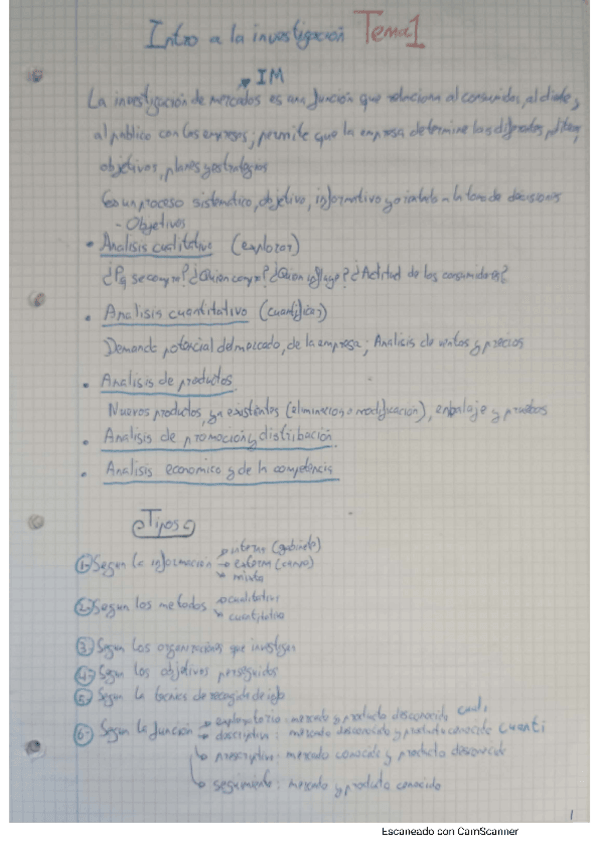 Intro a la investigación Tema 1
IM
La investigación de mercados es una función que relaciona al consumidor, al cliente y
al público con las empresas; permite que la empresa determine las
objetivos, planes y estrategias
Es un proceso sistematico, objetivo, informativo y orientado a la toma de decisiones
- Objetivos
• Analisis cualitativo (explorar)
¿Pq se compra? ¿Quien compra? ¿Quien influye? ¿Actitud de los consumidores?
• Analisis cuantitativo (cuantificar)
Demanda potencial del mercado, de la empresa; Analisis de ventas y precios
• Analisis de productos
Nuevos productos, ya existentes (eliminacion o modificación), embalaje y pruebas
• Analisis de promocion y distribución
• Analisis economico y de la competencia
Tipos
1- Segun la informacion → interna (gabinete)
→ externa (campo)
→ mixta
2- Segun los metodos → cualitativas
→ cuantitativa
3- Segun las organizaciones que investigan
4- Segun los objetivos perseguidos
5- Segun la tecnica de recogida de info
6- Segun la función → exploratorio: mercado y producto desconocido cuali
→ descriptiva: mercado desconocido y producto conocido cuanti
→ prescriptiva: mercado conocido y producto desconocido
→ seguimiento: mercado y producto conocido
1
Escaneado con CamScanner